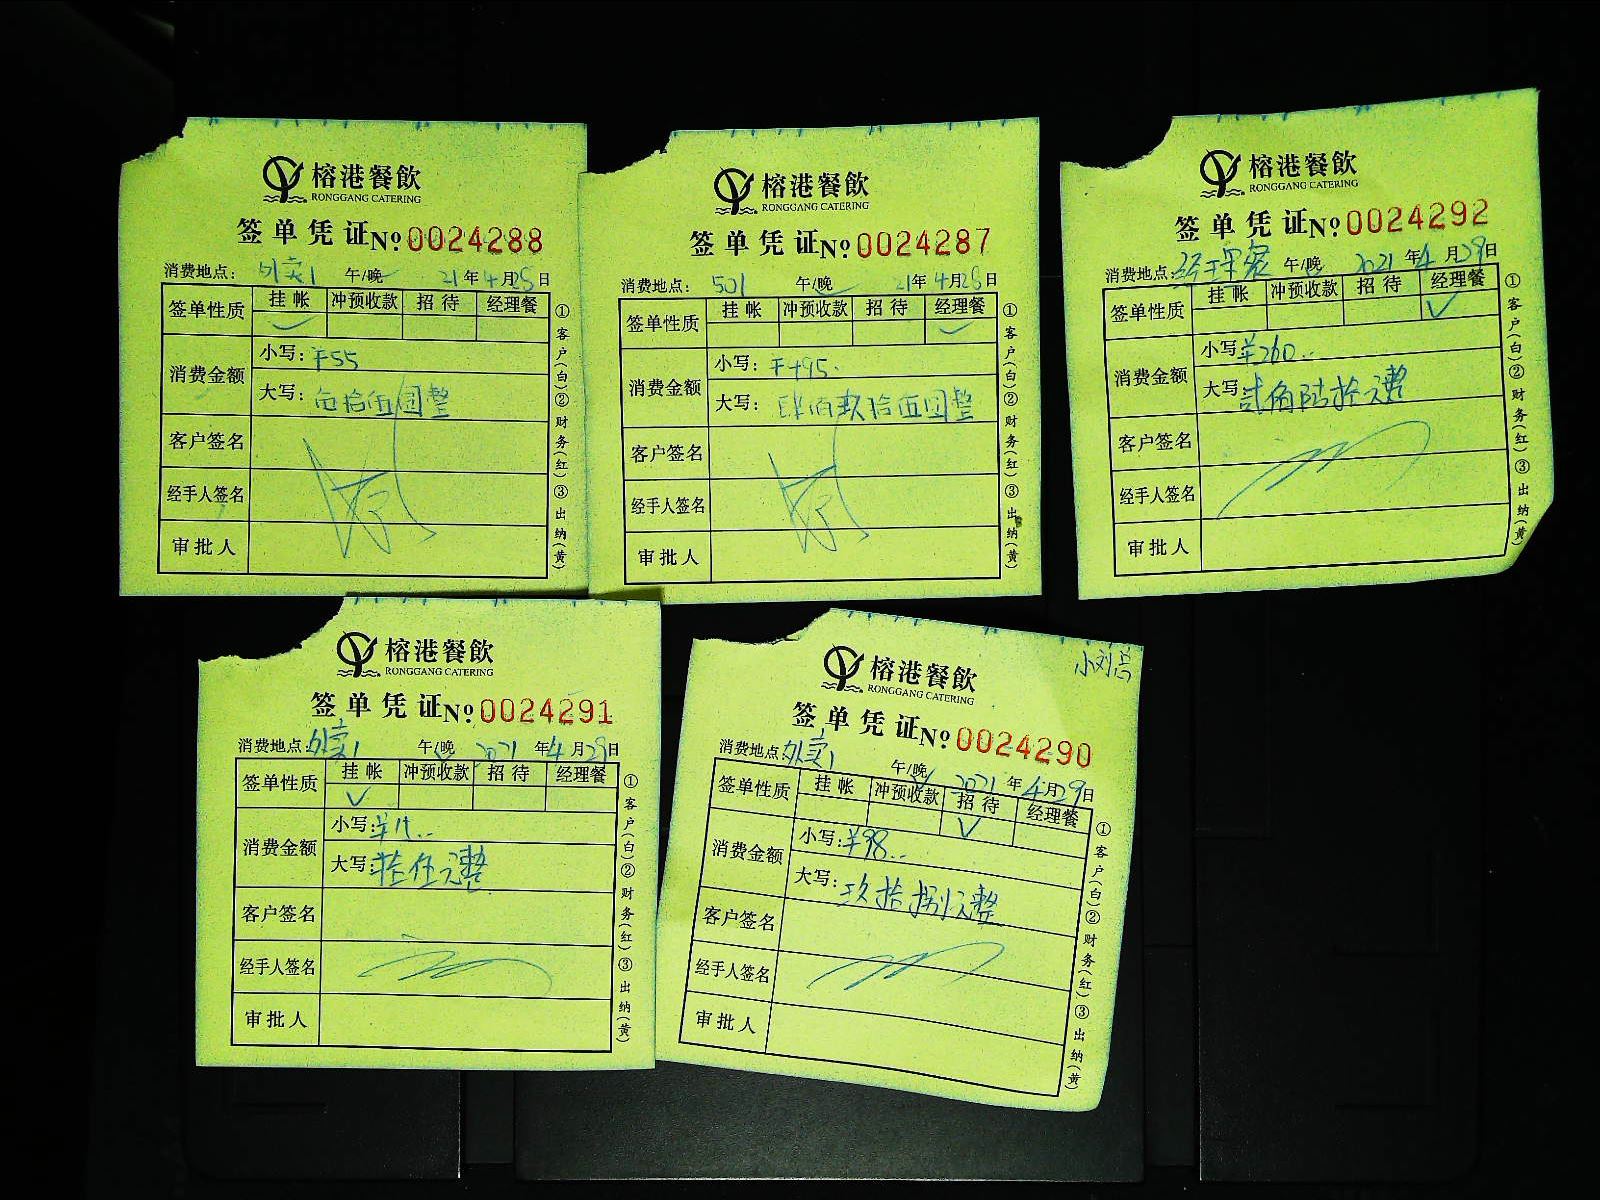 榕港餐飲
RONGGANG CATERING
签单凭证 №0024288
消费地点：外卖1 午/晚 21年4月28日
签单性质 挂帐 冲预收款 招待 经理餐
消费金额
小写：¥55
大写：伍拾伍圆整
客户签名
经手人签名
审批人
①客户(白)②财务(红)③出纳(黄)
榕港餐飲
RONGGANG CATERING
签单凭证 №0024287
消费地点：501 午/晚 21年4月28日
签单性质 挂帐 冲预收款 招待 经理餐
消费金额
小写：¥495.
大写：肆佰玖拾伍圆整
客户签名
经手人签名
审批人
①客户(白)②财务(红)③出纳(黄)
榕港餐飲
RONGGANG CATERING
签单凭证 №0024292
消费地点：经理 午/晚 2021年4月29日
签单性质 挂帐 冲预收款 招待 经理餐
消费金额
小写：¥260..
大写：贰佰陆拾元整
客户签名
经手人签名
审批人
①客户(白)②财务(红)③出纳(黄)
榕港餐飲
RONGGANG CATERING
签单凭证 №0024291
消费地点：外卖1 午/晚 2021年4月29日
签单性质 挂帐 冲预收款 招待 经理餐
消费金额
小写：¥15..
大写：拾伍元整
客户签名
经手人签名
审批人
①客户(白)②财务(红)③出纳(黄)
小刘
榕港餐飲
RONGGANG CATERING
签单凭证 №0024290
消费地点：外卖1 午/晚 2021年4月29日
签单性质 挂帐 冲预收款 招待 经理餐
消费金额
小写：¥98..
大写：玖拾捌元整
客户签名
经手人签名
审批人
①客户(白)②财务(红)③出纳(黄)